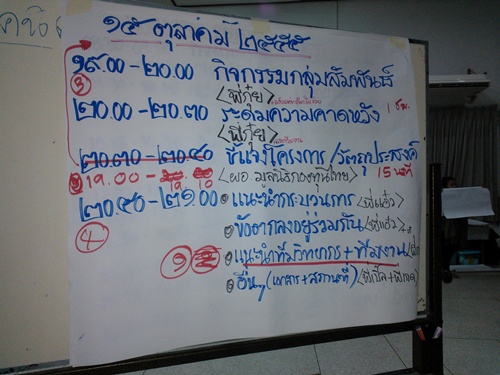 ๑๕ ตุลาคม ๒๕๕๕
๑๙.๐๐ - ๒๐.๐๐ กิจกรรมกลุ่มสัมพันธ์
③ <พี่กุ้ย>
๒๐.๐๐ - ๒๐.๓๐ ระดมความคาดหวัง ๑ ชม.
<พี่กุ้ย>
๒๐.๓๐ - ๒๐.๔๐ ชี้แจงโครงการ / วัตถุประสงค์
19.00 - 19.10 <ผอ มูลนิธิกองทุนไทย> 15 นาที
๒๐.๔๐ - ๒๑.๐๐ แนะนำกระบวนการ
④ ข้อตกลงอยู่ร่วมกัน
① แนะนำทีมวิทยากร + ทีมงาน
อื่นๆ (เอกสาร + สถานที่)